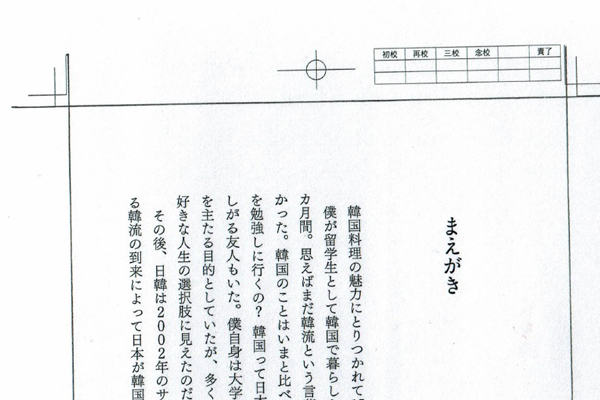 初校 再校 三校 念校 責了
まえがき
韓国料理の魅力にとりつかれて
僕が留学生として韓国で暮らし
カ月間。思えばまだ韓流という言
かった。韓国のことはいまと比べ
を勉強しに行くの？ 韓国って日
しがる友人もいた。僕自身は大学
を主たる目的としていたが、多く
好きな人生の選択肢に見えたのだ
その後、日韓は2002年のサ
る韓流の到来によって日本が韓国